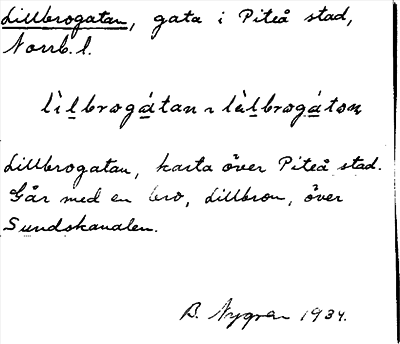 Lillbrogatan, gata i Piteå stad,
Norrb. l.
lìlbrogátan ~ lìlbrogátȯn
Lillbrogatan, karta över Piteå stad.
Går med en bro, Lillbron, över
Sundskanalen.
B. Nygren 1934.